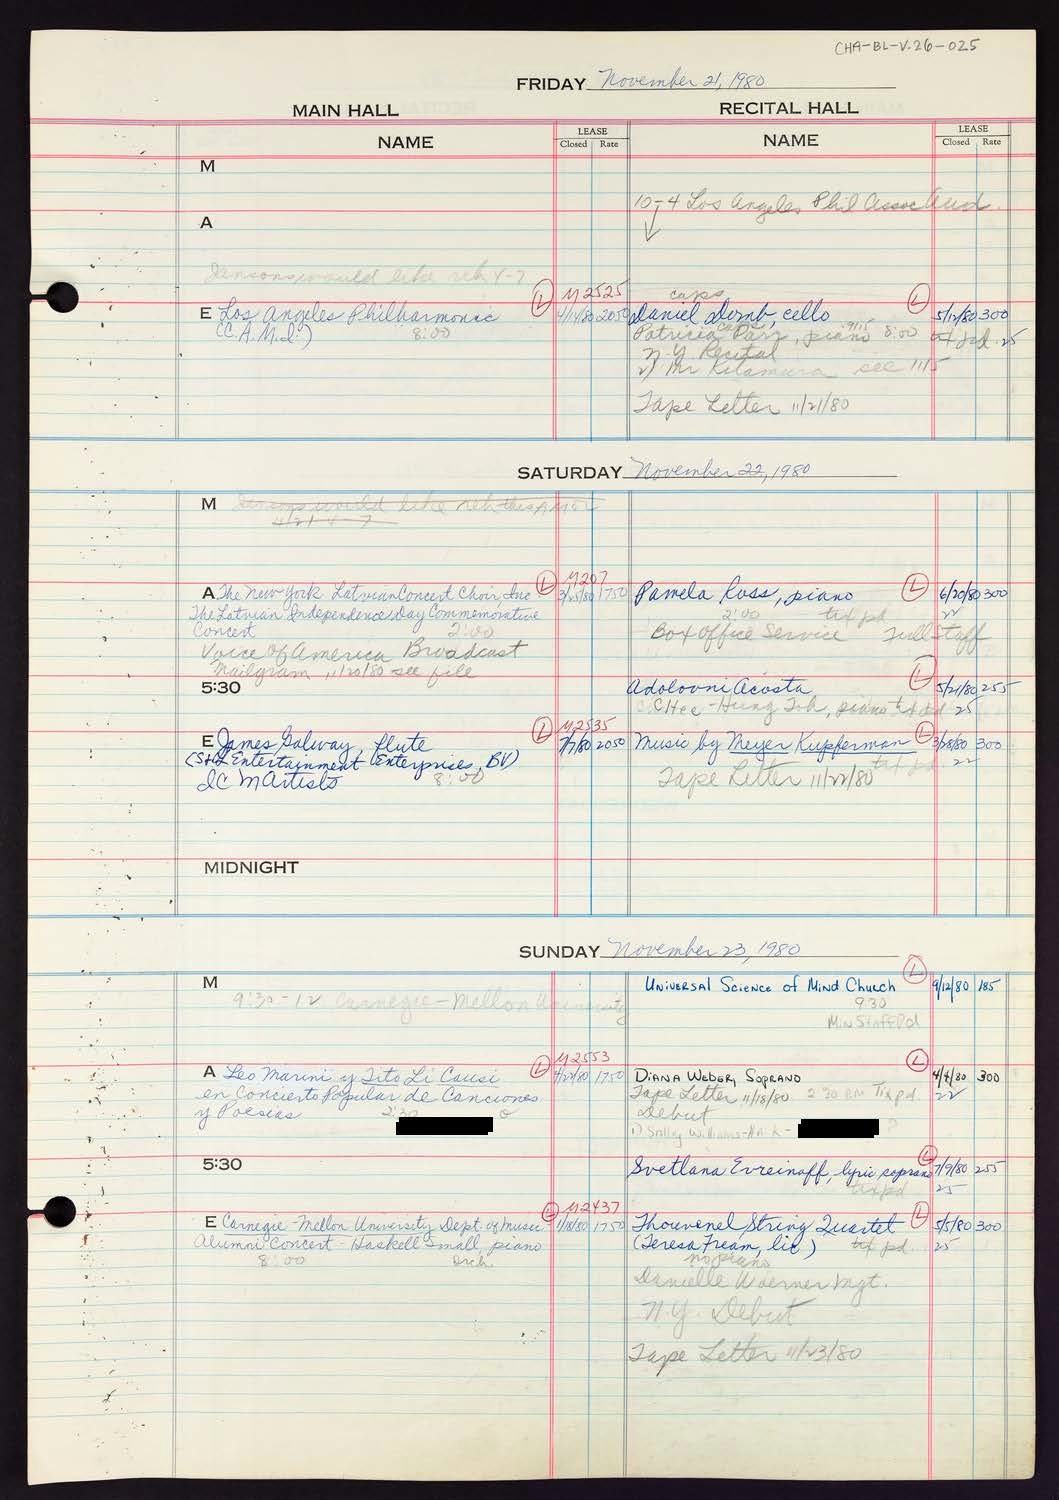 CHA-BL-V.26-025
FRIDAY November 21, 1980
MAIN HALL
RECITAL HALL
NAME
LEASE
Closed Rate
NAME
LEASE
Closed Rate
M
10-4 Los Angeles Phil Assoc Aud.
A
Jansons would like reh 4-7
L M2525
E Los Angeles Philharmonic 4/14/80 2050
(C.A.M.I.) 8:00
caps L
Daniel Domb, cello 5/12/80 300
Patricia Parr, piano 8:00 tax pd. 25
N.Y. Recital
2) Mr Kitamura see 11/5
Tape Letter 11/21/80
SATURDAY November 22, 1980
M Jansons would like reh this AM
4/21 4-7
L M207
A The New York Latvian Concert Choir, Inc 1750
The Latvian Independence Day Commemorative
Concert 2:00
Voice of America Broadcast
Mailgram, 11/20/80 see file
Pamela Ross, piano L 6/20/80 300
2:00 tax pd 22
Box Office Service Full Staff
5:30
Adolovni Acosta L 5/21/80 255
Chee-Hung Toh, piano tax pd 25
L M2535
E James Galway, flute 7/7/80 2050
(S&G Entertainment Enterprises, BV)
ICM Artists 8:00
Music by Meyer Kupferman L 3/28/80 300
tax pd. 22
Tape Letter 11/22/80
MIDNIGHT
SUNDAY November 23, 1980
M
9:30-12 Carnegie-Mellon University
L
Universal Science of Mind Church 9/12/80 185
9:30
Min Staff Pd
L M2553
A Leo Marini y Tito Li Causi 4/24/80 1750
en Concierto Popular de Canciones
y Poesias 2:30
L
Diana Weber, Soprano 4/4/80 300
Tape Letter 11/18/80 2 30 PM Tix pd. 22
Debut
5:30
L
Svetlana Evreinoff, lyric soprano 7/9/80 255
tax pd 25
L M2437
E Carnegie-Mellon University Dept. of Music 1/8/80 1750
Alumni Concert - Haskell Small, piano
8:00 Orch
Thouvenel String Quartet L 5/5/80 300
(Teresa Fream, lic) tax pd. 25
no piano
Danielle Woerner Mgt.
N.Y. Debut
Tape Letter 11/23/80